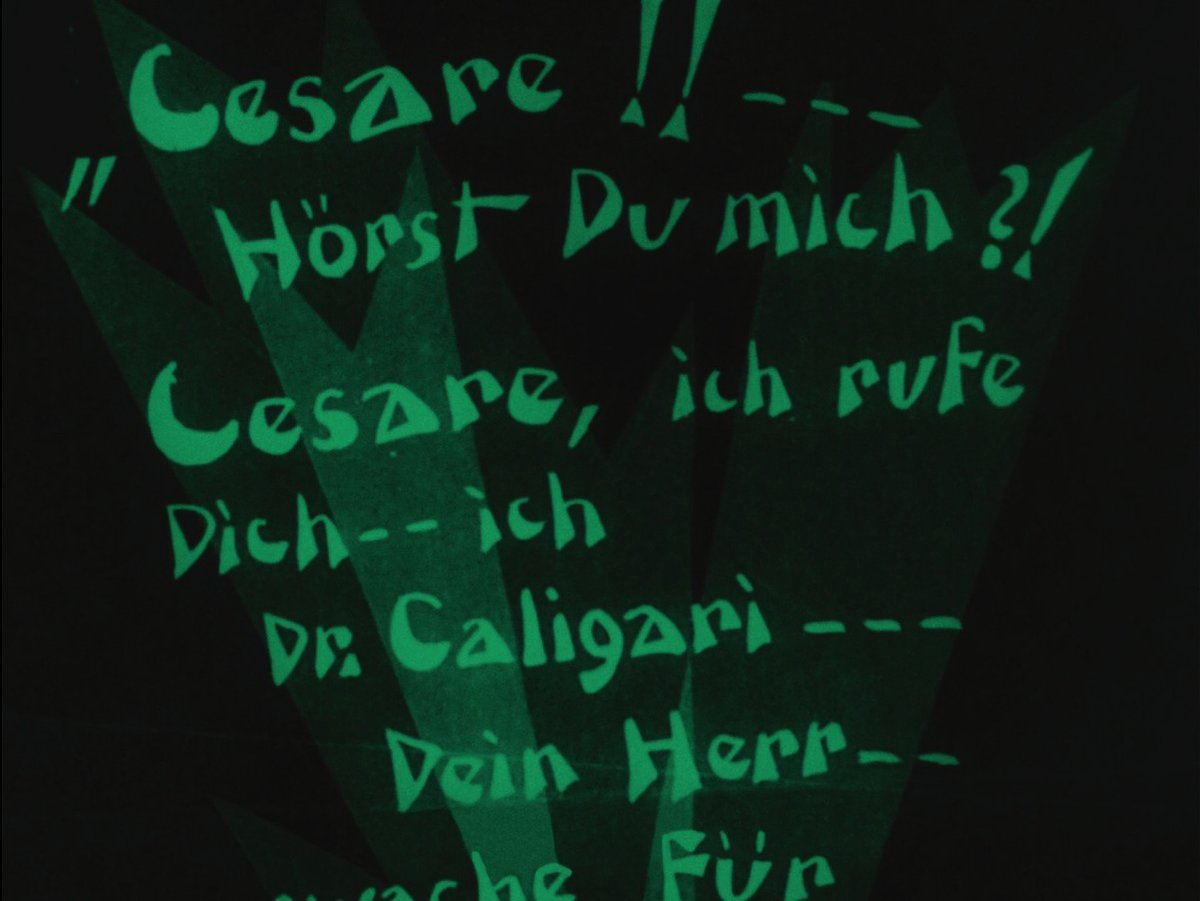 Cesare !! ---
" Hörst Du mich ?!
Cesare, ich rufe
Dich -- ich
Dr. Caligari ---
Dein Herr --
für